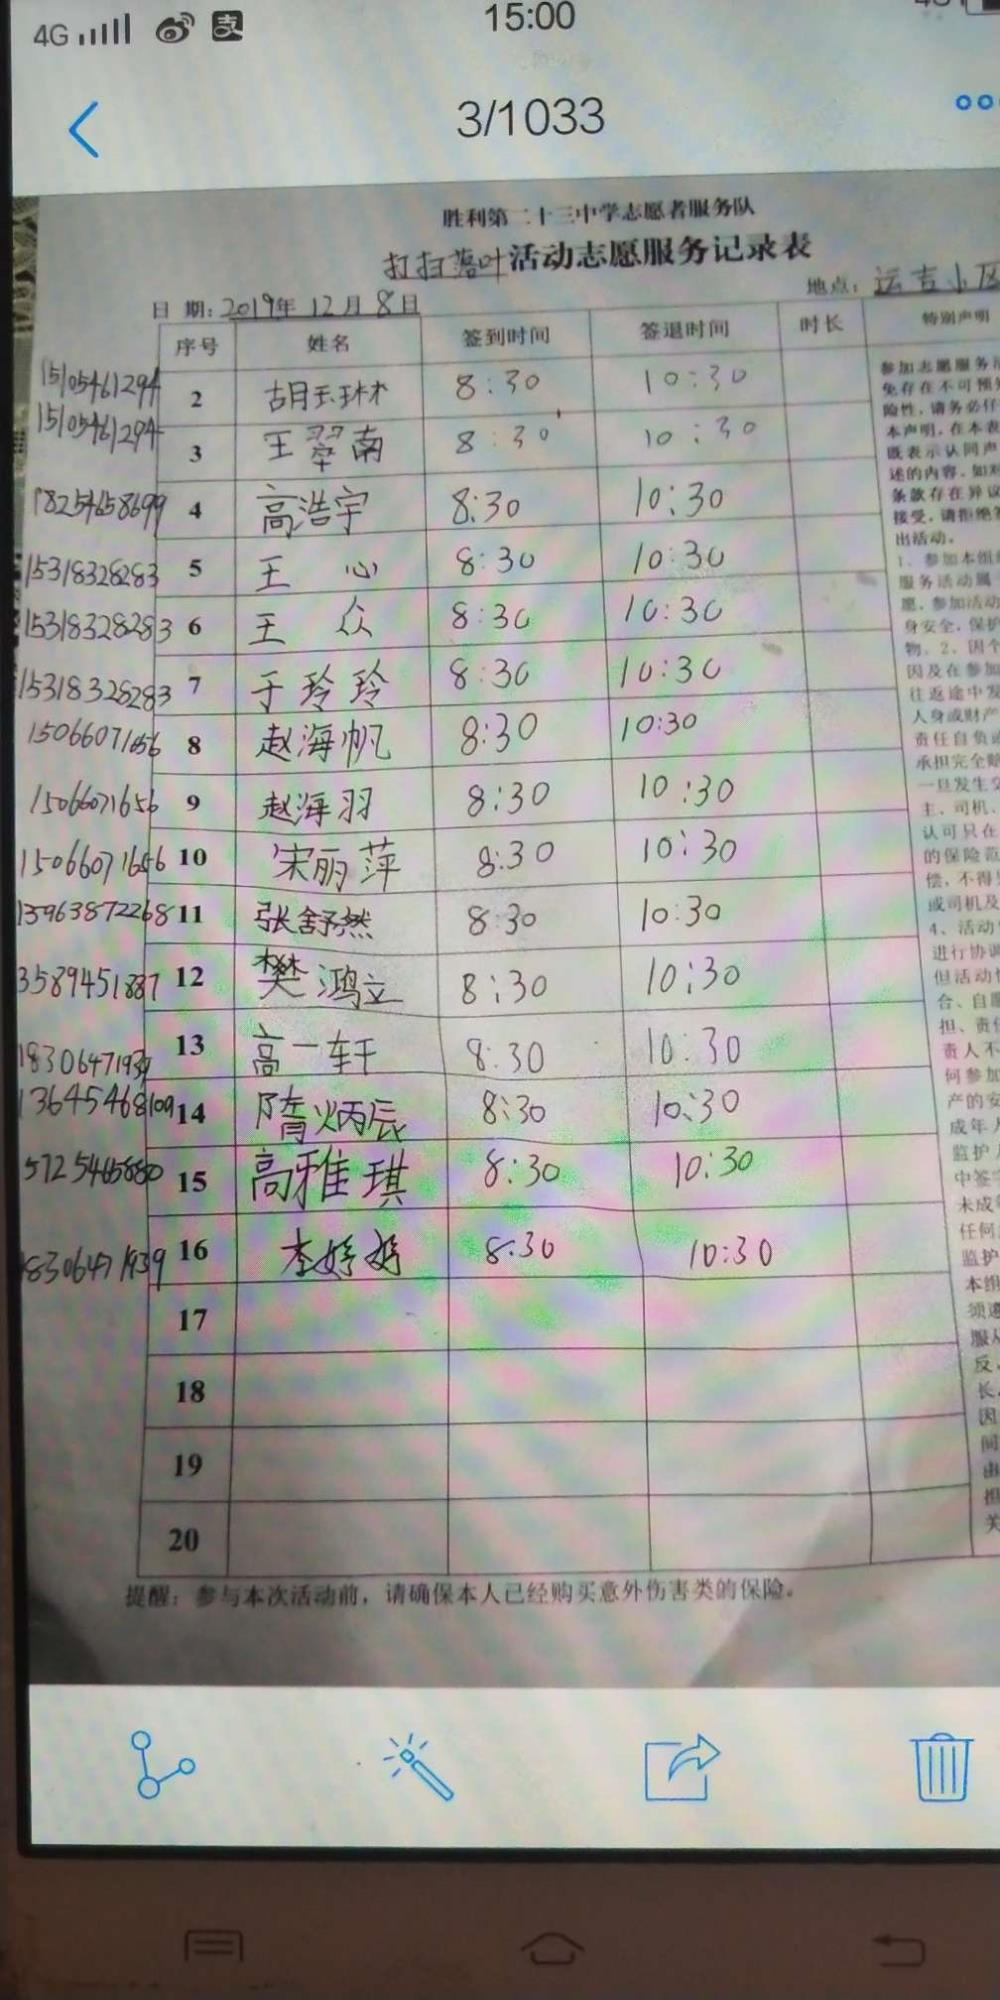 4G 15:00
3/1033
胜利第二十三中学志愿者服务队
打扫落叶活动志愿服务记录表
日 期：2019年 12月 8日 地点：运吉小区
序号 姓名 签到时间 签退时间 时长 特别声明
15105461294 2 胡玉琳 8:30 10:30
15105461294 3 王翠南 8:30 10:30
18254658699 4 高浩宇 8:30 10:30
15318328283 5 王 心 8:30 10:30
15318328283 6 王 众 8:30 10:30
15318328283 7 于玲玲 8:30 10:30
15066071656 8 赵海帆 8:30 10:30
15066071656 9 赵海羽 8:30 10:30
15066071656 10 宋丽萍 8:30 10:30
13963872268 11 张舒然 8:30 10:30
3589451887 12 樊鸿立 8:30 10:30
18306471939 13 高一轩 8:30 10:30
13645468109 14 隋炳辰 8:30 10:30
5725465880 15 高雅琪 8:30 10:30
18306471939 16 李婷婷 8:30 10:30
17
18
19
20
参加志愿服务活
免存在不可预知
险性，请务必仔
本声明，在本表
既表示认同声
述的内容，如对
条款存在异议
接受，请拒绝签
出活动。
1、参加本组织
服务活动属
愿，参加活动
身安全，保护
物。2、因个
因及在参加
往返途中发
人身或财产
责任自负
承担完全赔
一旦发生交
主、司机、
认可只在
的保险范
偿，不得
或司机及
4、活动
进行协调
但活动
合、自愿
担、责任
责人不
何参加
产的安
成年人
监护人
中签字
未成年
任何
监护
本组
须遵
服从
反，
长
因
间
出
担
关
提醒：参与本次活动前，请确保本人已经购买意外伤害类的保险。